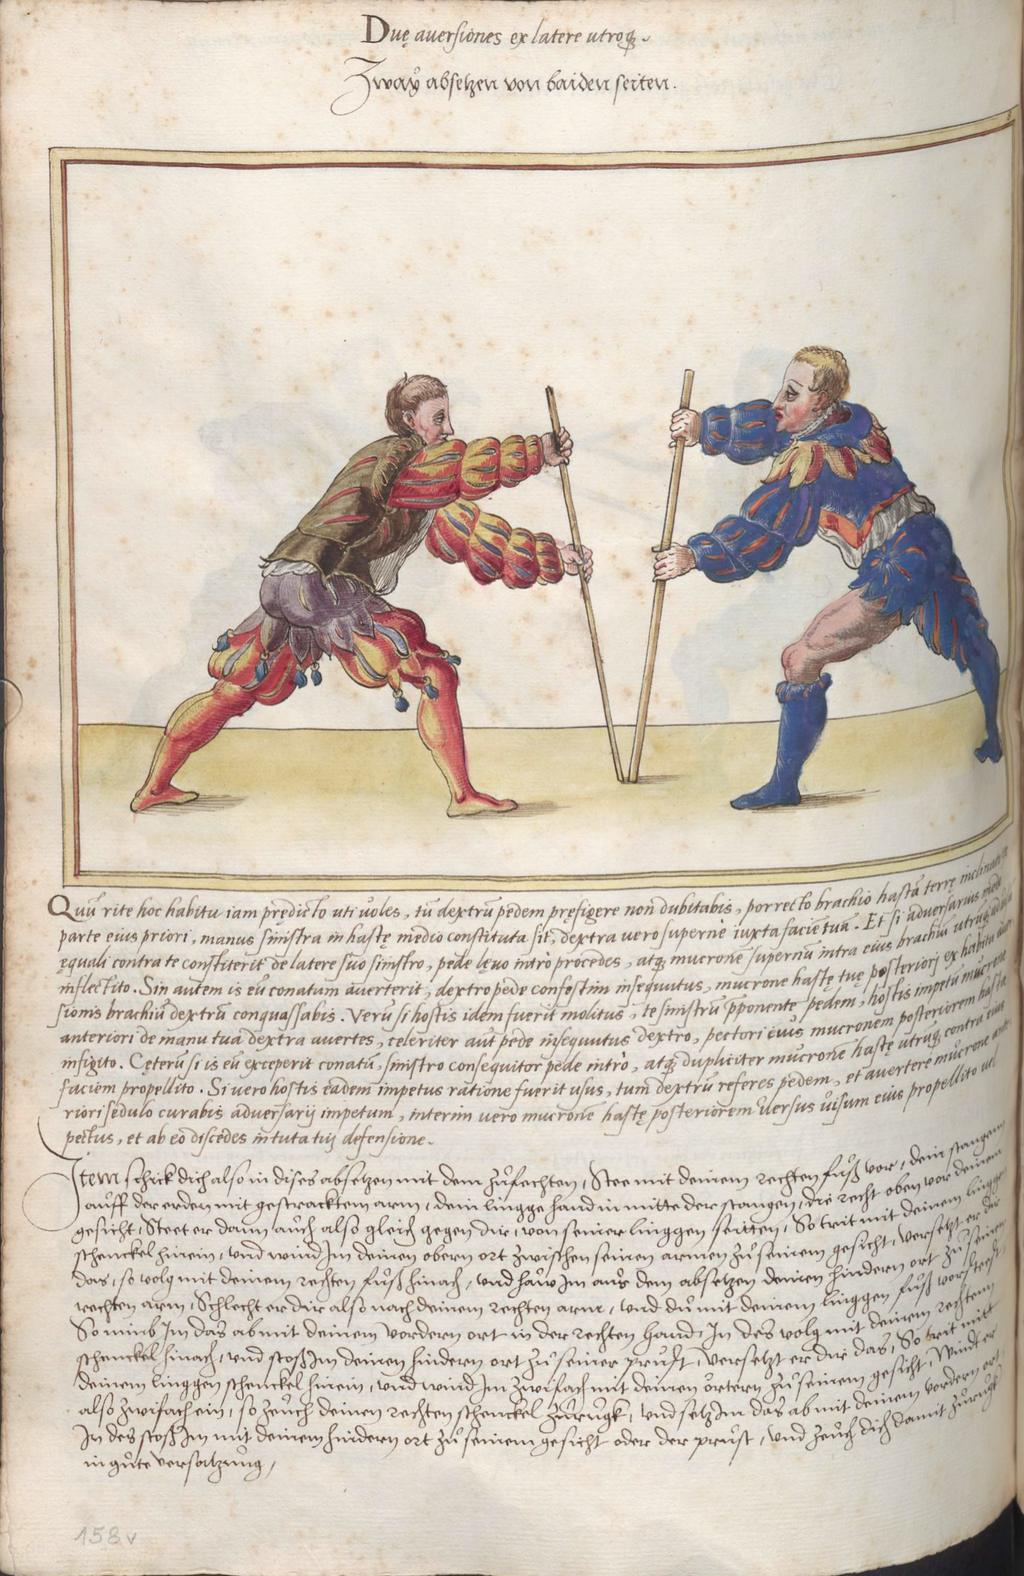 Duę auersiones ex latere utroq₃.
Zway absetzen von baiden seiten.
Quū rite hoc habitu iam predicto uti uoles, tū dextrū pedem prefigere non dubitabis, porrecto brachio hastā terrę inclinato
parte eius priori, manus sinistra in hastę medio constituta sit, dextra uero supernè iuxta faciē tuā. Et si aduersarius modo
ęquali contra te constiterit de latere suo sinistro, pede lęuo intrò procedes, atq₃ mucronē supernū intra eius brachia utraq₃
inflectito. Sin autem is eū conatum auerterit, dextro pede confestim insequutus, mucrone hastę tuę posteriorj ex habita auer
sionis brachiū dextrū conquassabis. Verū si hostis idem fuerit molitus, te sinistrū p̄ponente pedem, hostis impetū mucrone
anteriori de manu tua dextra auertes, celeriter aūt pede insequutus dextro, pectori eius mucronem posteriorem hastę
infigito. Cęterū si is eū exceperit conatū, sinistro consequitor pede intrò, atq₃ dupliciter mucrone hastę utruq₃ contra eius
faciem propellito. Si uero hostis eadem impetus ratione fuerit usus, tum dextrū referes pedem, et auertere mucrone ante
riori sedulo curabis aduersarij impetum, interim uero mucronē hastę posteriorem uersus uisum eius propellito uel
pectus, et ab eo discedes in tuta tui defensione.
Item schick dich also in dises absetzen mit dem zůfechten, Stee mit deinem rechten fůß vor, dein stangen
auff der erden mit gestracktem arm, dein lingge hand in mitte der stangen, die recht oben vor deinem
gesicht, Steet er dann auch also gleich gegen dir, von seiner linggen seitten, So trit mit deinem lingge
schenckel hinein, und wind Im deinen obern ort zwischen seinen armen zů seinem gesicht, versetzt er dir
das, so volg mit deinem rechten fůß hinach, und haw Im aus dem absetzen deinen hindern ort zů seinen
rechten arm, Schlecht er dir also nach deinem rechten arm, und du mit deinem linggen fůß vorsteest,
So nimb Im das ab mit deinem vordern ort in der rechten hand, In des volg mit deinem rechtem
schenckel hinach, und stoß Im deinen hindern ort zů seiner prust, Versetzt er dir das, So trit mit
deinem linggen schenckel hinein, und wind Im zwifach mit deinen örtern zů seinem gesicht, Windt er
also zwifach ein, so zeuch deinen rechten schenckel zurugk, und setz Im das ab mit deinem vordern ort
In des stoß Im mit deinem hindern ort zů seinem gesicht oder der prust, und zeuch dich damit zurugk
in gůte versatzung,
158v